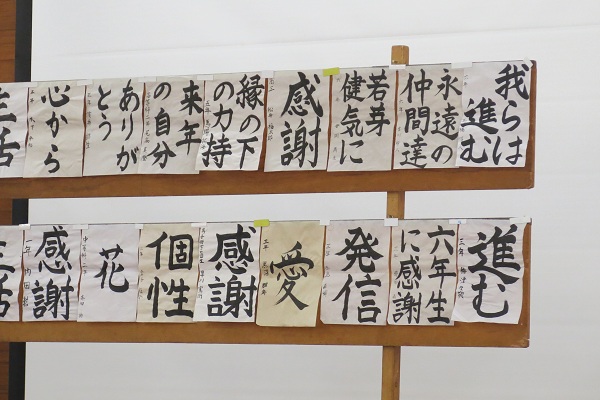 我らは
進む
永遠の
仲間達
若芽
健気に
感謝
縁の下
の力持
来年
の自分
ありが
とう
心から
生活
進む
六年生
に感謝
発信
愛
感謝
個性
花
感謝
生活